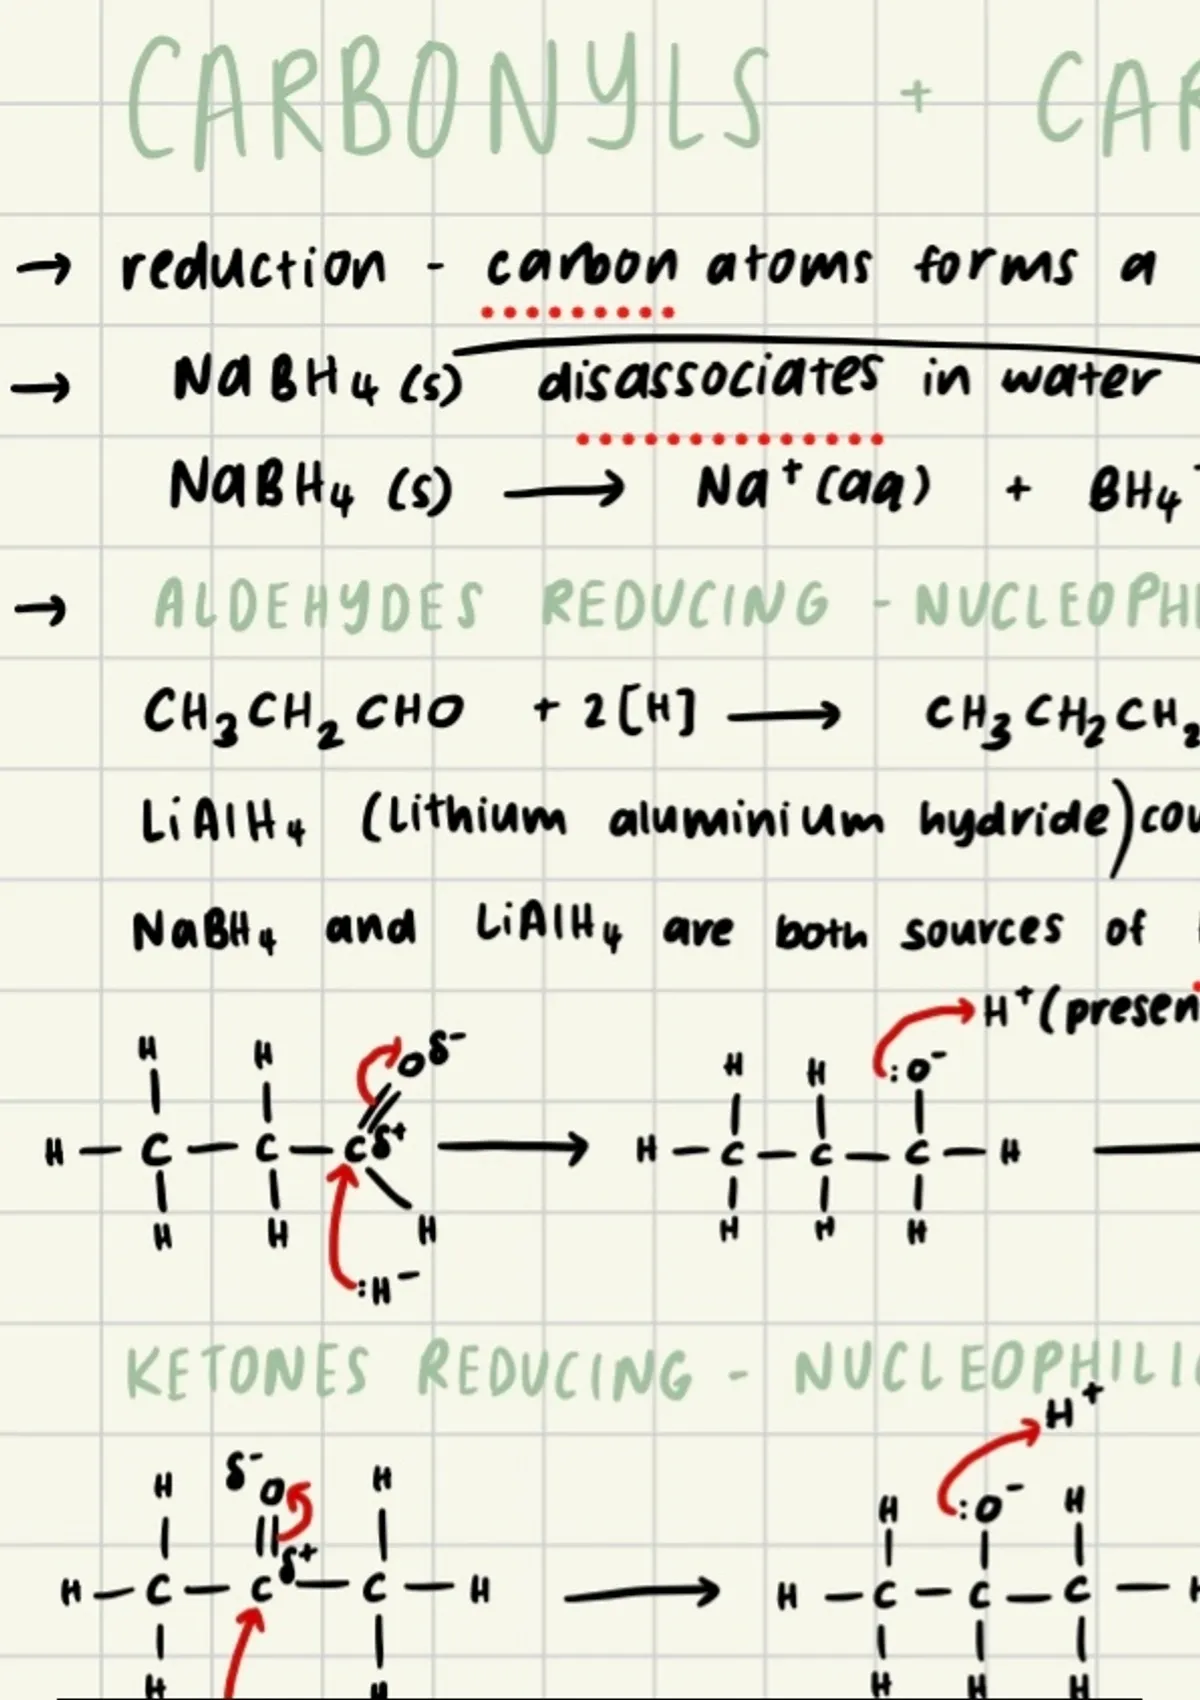 CARBONYLS + CAR
→ reduction - carbon atoms forms a
→ NaBH4 (s) disassociates in water
NaBH4 (s) → Na⁺(aq) + BH4⁻
→ ALDEHYDES REDUCING - NUCLEOPHI
CH3CH2CHO + 2[H] → CH3CH2CH2
LiAlH4 (Lithium aluminium hydride) cou
NaBH4 and LiAlH4 are both sources of
H⁺ (presen
H H O δ⁻ H H :O⁻
H — C — C — C δ⁺ → H — C — C — C — H
H H H H H H
:H⁻
KETONES REDUCING - NUCLEOPHILIC
H⁺
H δ⁻ O H H :O⁻ H
H — C — C δ⁺ — C — H → H — C — C — C — H
H H H H H